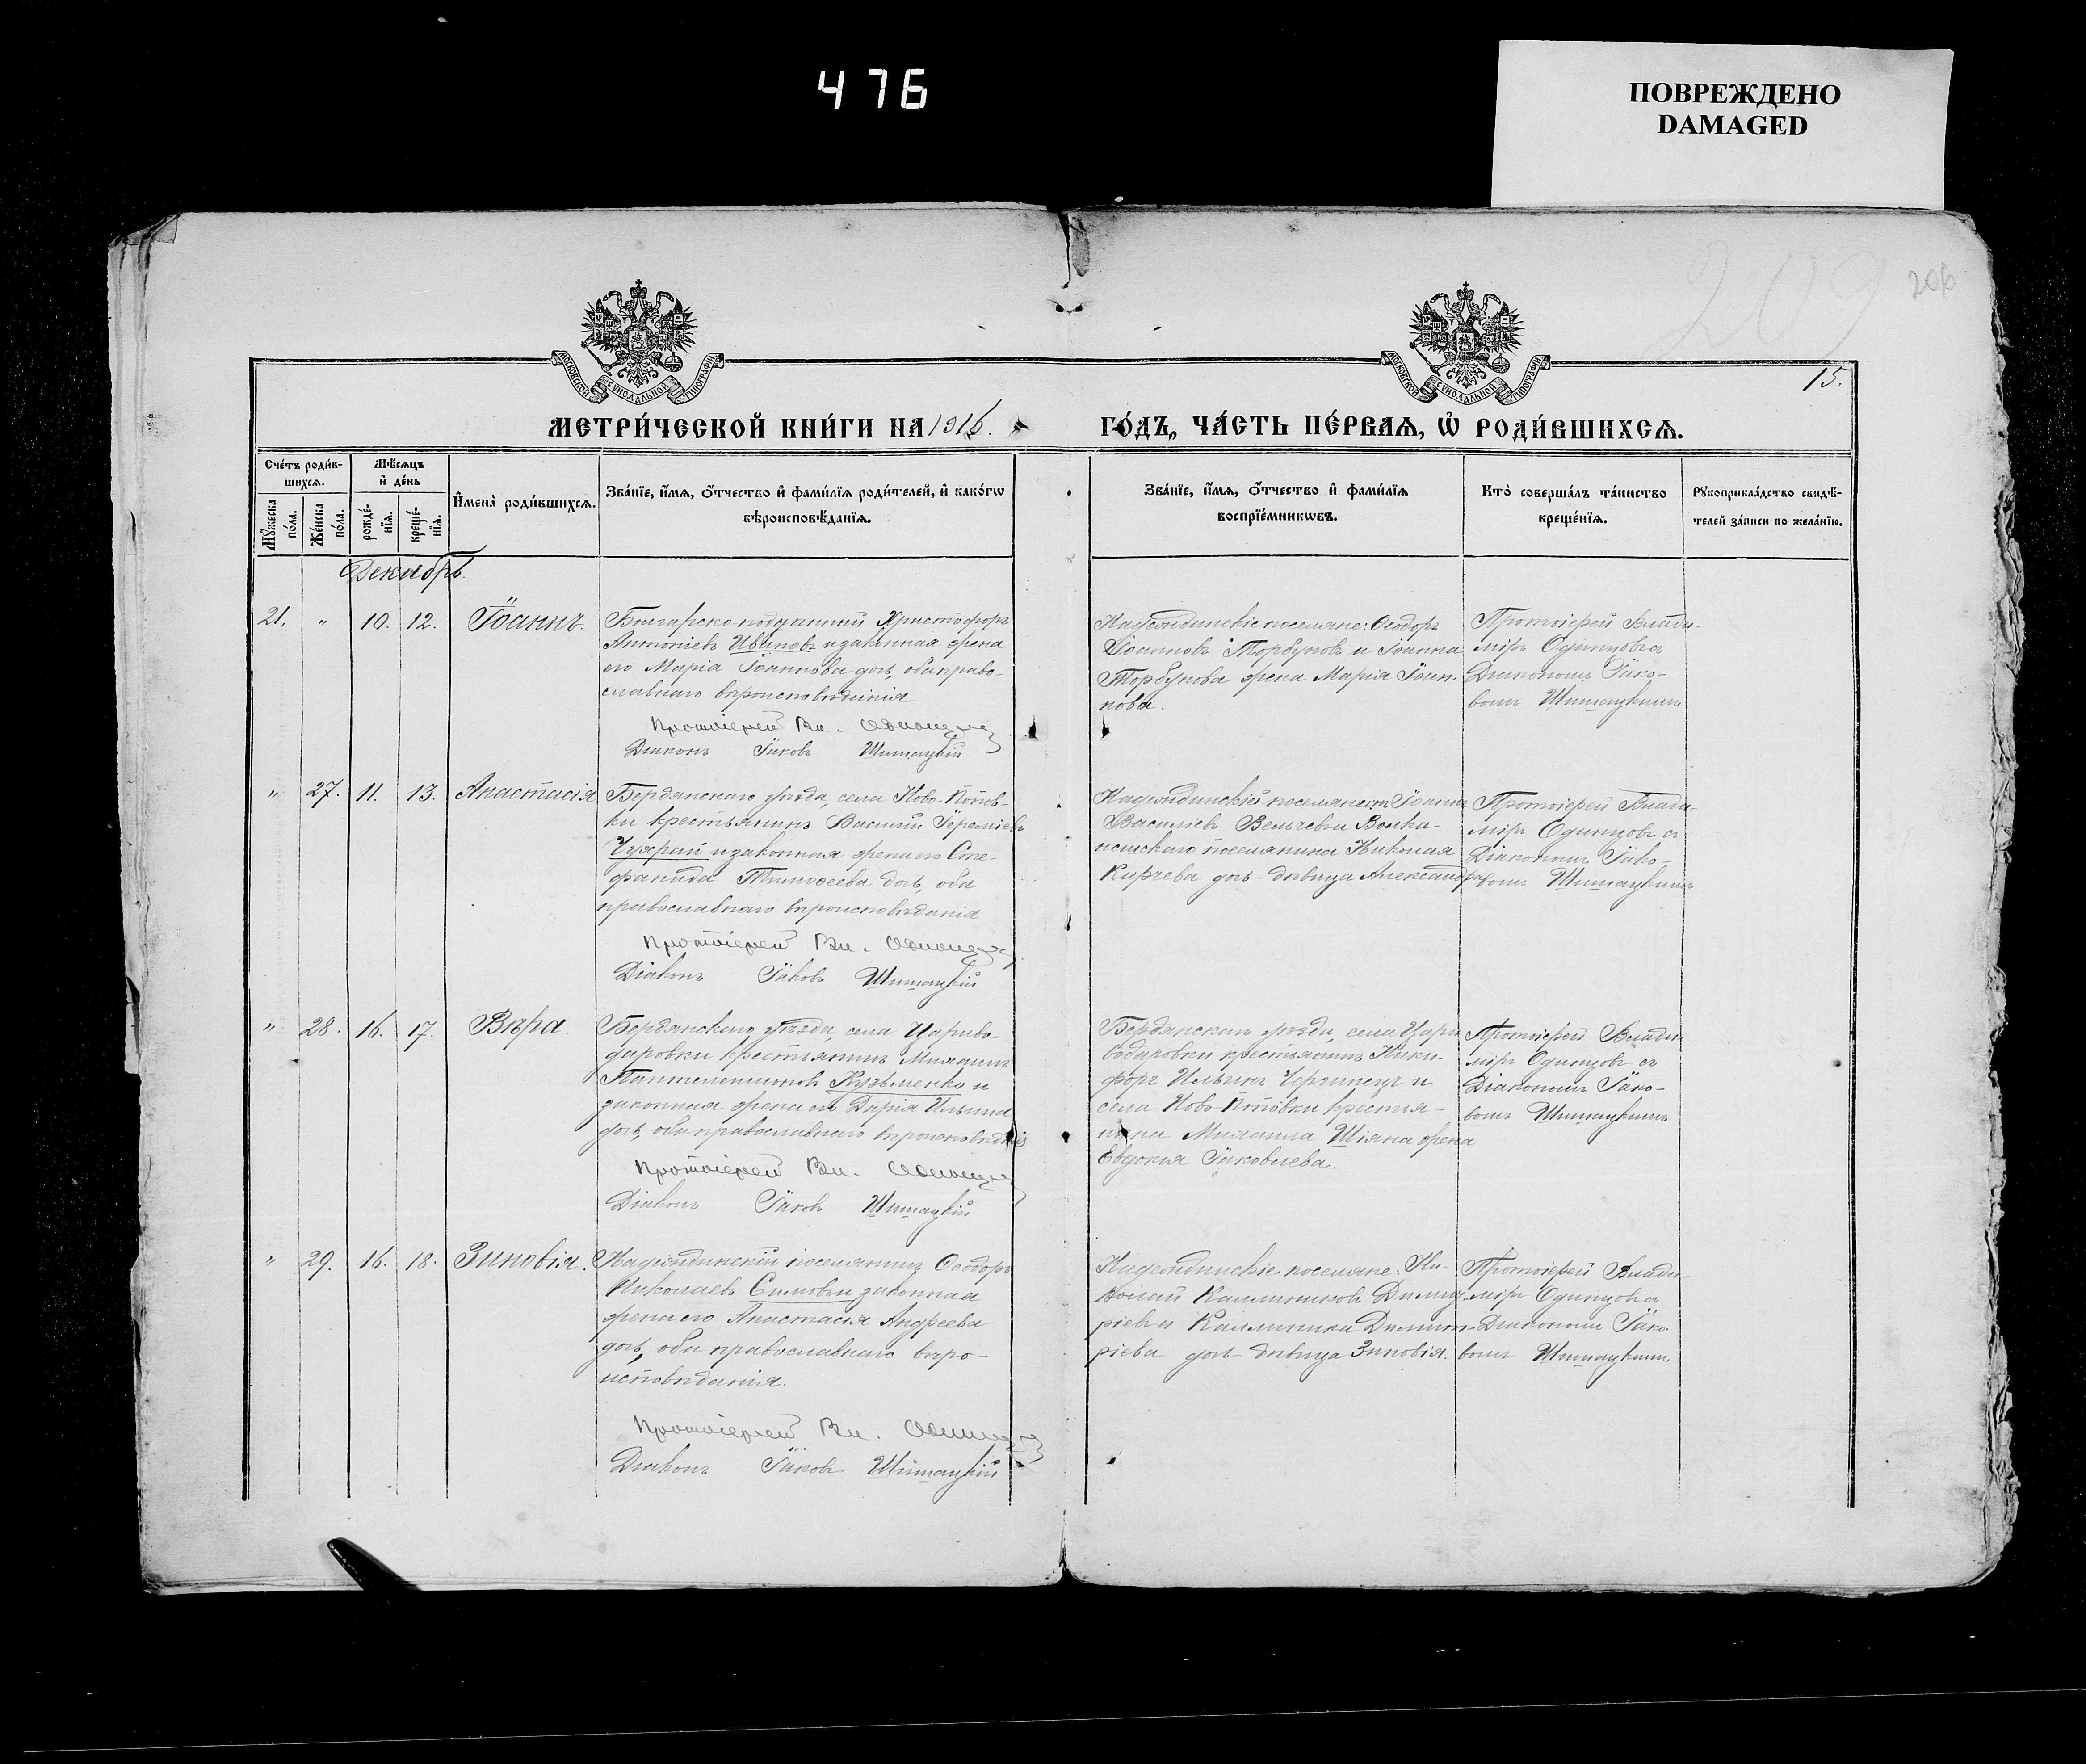 476
ПОВРЕЖДЕНО
DAMAGED
209
206
15.
МОСКОВСКОЙ СѴНОДАЛЬНОЙ ТИПОГРАФІИ
МОСКОВСКОЙ СѴНОДАЛЬНОЙ ТИПОГРАФІИ
МЕТРИ́ЧЕСКОЙ КНИ́ГИ НА 1916.
ГО́ДЪ, ЧА́СТЬ ПЕ́РВАѦ, Ѡ҆ РОДИ́ВШИХСѦ.
Сче́тъ роди́в-
шихсѧ.
Мѣ́сѧцъ
и҆ де́нь
Мꙋ́жеска по́ла.
Же́нска по́ла.
рожде́-
нїѧ.
креще́-
нїѧ.
И҆мена̀ роди́вшихсѧ.
Зва́нїе, и҆́мѧ, ѻ҆́тчество и҆ фами́лїѧ роди́телей, и҆ како́гѡ
вѣроисповѣ́данїѧ.
Зва́нїе, и҆́мѧ, ѻ҆́тчество и҆ фами́лїѧ
воспрїе́мникѡвъ.
Кто̀ соверша́лъ та́инство
креще́нїѧ.
Рꙋкоприкла́дство свидѣ́-
телей за́писи по жела́нїю.
Декабрь.
21. " 10. 12. Іоаннъ.
Болгарско-подданный Христофоръ
Антоніевъ Ивановъ и законная жена
его Марія Іоаннова дочь, оба право-
славнаго вѣроисповѣданія
Протоіерей Вл. Одинцовъ
Діаконъ Іаковъ Шишацкій
Надеждинскіе поселяне: Ѳеодоръ
Іоанновъ Торбуновъ и Іоанна
Торбунова жена Марія Іоан-
нова.
Протоіерей Влади-
міръ Одинцовъ съ
Діакономъ Іако-
вомъ Шишацкимъ
" 27. 11. 13. Анастасія
Бердянскаго уѣзда, села Ново-Попов-
ки крестьянинъ Василій Іереміевъ
Чухрай и законная жена его Сте-
фанида Тимоѳеева дочь, оба
православнаго вѣроисповѣданія
Протоіерей Вл. Одинцовъ
Діаконъ Іаковъ Шишацкій
Надеждинскій поселянинъ Іоаннъ
Василіевъ Вельчевъ и Волка-
нешскаго поселянина Николая
Кирчева дочь - дѣвица Александра
Протоіерей Влади-
міръ Одинцовъ съ
Діакономъ Іако-
вомъ Шишацкимъ
" 28. 16. 17. Вѣра.
Бердянскаго уѣзда, села Цариво-
даровки крестьянинъ Михаилъ
Пантелеимоновъ Кузьменко и
законная жена его Дарія Ильина
дочь, оба православнаго вѣроисповѣданія
Протоіерей Вл. Одинцовъ
Діаконъ Іаковъ Шишацкій
Бердянскаго уѣзда, села Цари-
водаровки крестьянинъ Ники-
форъ Ильинъ и
села Ново-Поповки крестья-
нина Михаила Шіяна жена
Евдокія Іаковлева.
Протоіерей Влади-
міръ Одинцовъ съ
Діакономъ Іако-
вомъ Шишацкимъ
" 29. 16. 18. Зиновія.
Надеждинскій поселянинъ Ѳеодоръ
Николаевъ Симовъ и законная
жена его Анастасія Андреева
дочь, оба православнаго вѣро-
исповѣданія.
Протоіерей Вл. Одинцовъ
Діаконъ Іаковъ Шишацкій
Надеждинскіе поселяне: Ни-
колай Каллиниковъ Димит-
ріевъ и Каллиника Димит-
ріева дочь - дѣвица Зиновія.
Протоіерей Влади-
міръ Одинцовъ съ
Діакономъ Іако-
вомъ Шишацкимъ